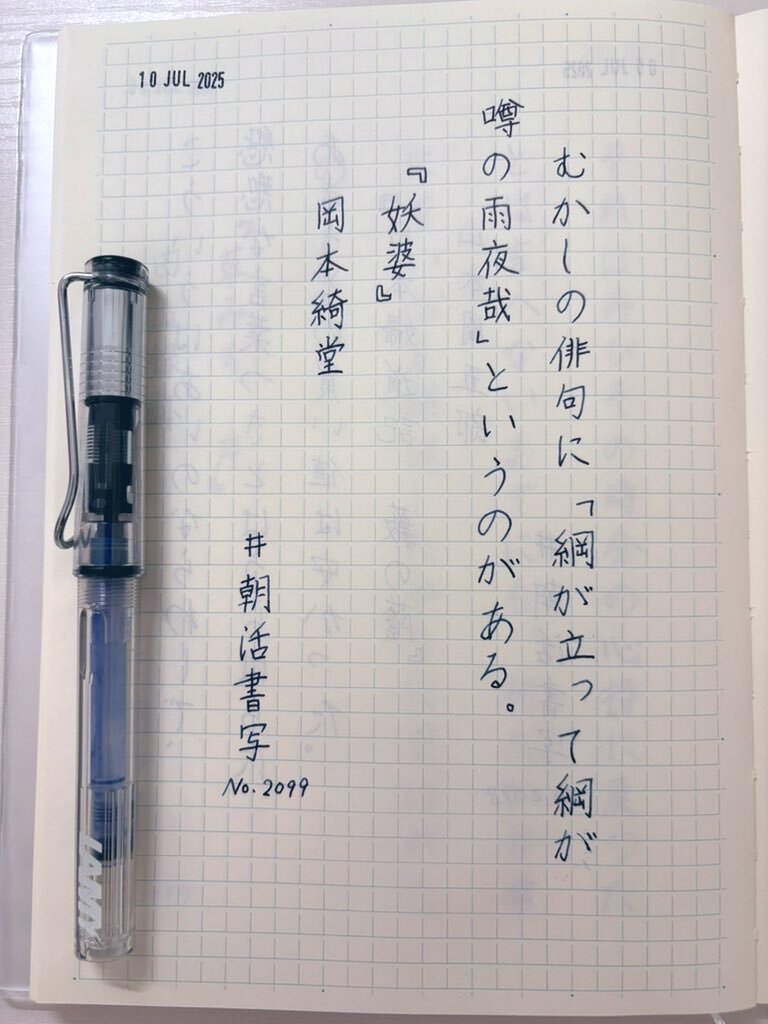 10 JUL 2025
むかしの俳句に「綱が立って綱が
噂の雨夜哉」というのがある。
『妖婆』
岡本綺堂
#朝活書写
No. 2099
LAMY